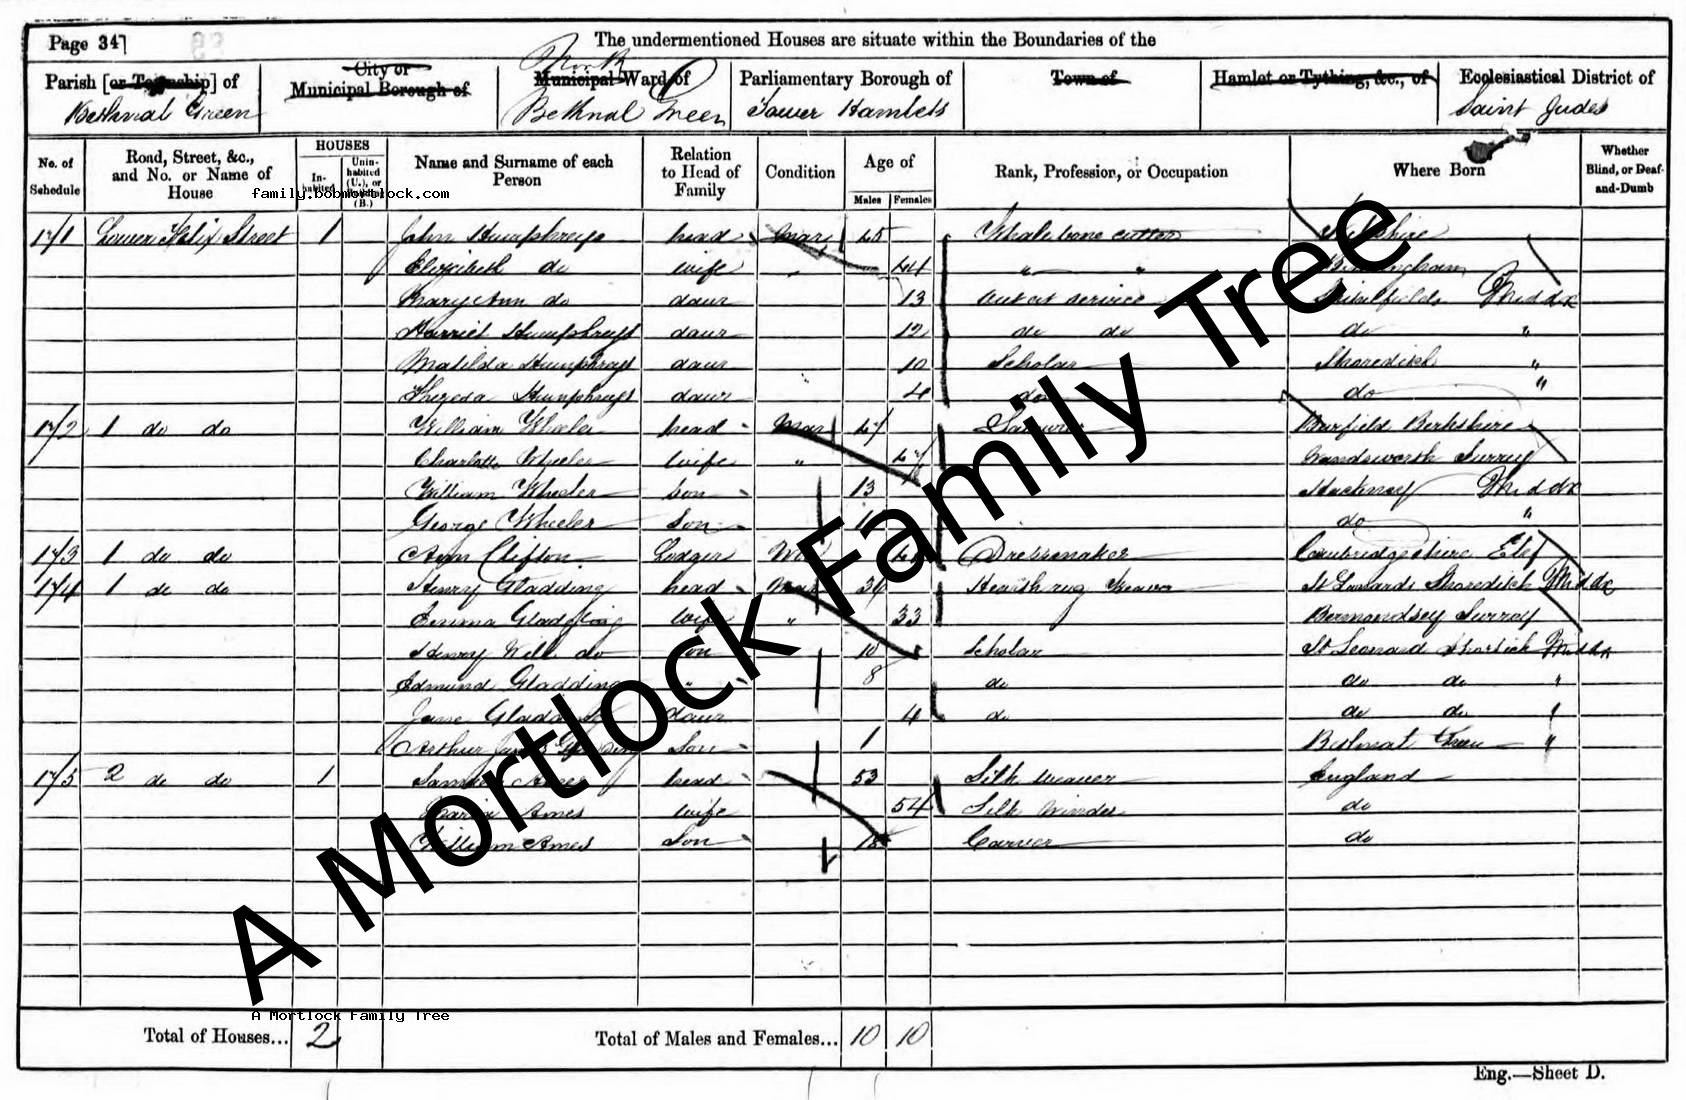 Page 347
The undermentioned Houses are situate within the Boundaries of the
Parish [or Township] of Bethnal Green
City or Municipal Borough of
Municipal Ward of North Bethnal Green
Parliamentary Borough of Tower Hamlets
Town of
Hamlet or Tything, &c., of
Ecclesiastical District of Saint Judes
No. of Schedule
Road, Street, &c., and No. or Name of House
HOUSES
In-habited
Unin-habited (U.), or (B.)
Name and Surname of each Person
Relation to Head of Family
Condition
Age of
Males Females
Rank, Profession, or Occupation
Where Born
Whether Blind, or Deaf-and-Dumb
family.bobmortlock.com
171 Lower Street 1 John Humphreys head Mar 45 Whalebone cutter Wiltshire
Elizabeth do wife " 44 " " Birmingham
Mary Ann do daur 13 out at service Middx
Harriet Humphreys daur 12 do do do "
Matilda Humphreys daur 10 Scholar Shoreditch "
Humphreys daur 4 do do "
172 1 do do William Wheeler head Mar 47 Burfield Berkshire
Charlotte Wheeler wife " 47 Wandsworth Surrey
William Wheeler son 13 Hackney Middx
George Wheeler Son 11 do "
173 1 do do Ann Clifton Lodger Dressmaker Cambridgeshire Ely
174 1 do do Henry Gladding head Mar 34 Hearth rug Weaver St Lenards Shoreditch Middx
Emma Gladding wife " 33 Bermondsey Surrey
Henry Will do son 10 Scholar St Leonard Middx
Edmund Gladding " 8 do do do "
Jane Gladding daur 4 do do do "
Arthur James Gladding Son 1 Bethnal Green "
175 2 do do 1 Samuel Ames head 53 Silk weaver England
Maria Ames wife 54 Silk Winder do
William Ames Son 18 Carver do
A Mortlock Family Tree
A Mortlock Family Tree
Total of Houses... 2
Total of Males and Females... 10 10
Eng.—Sheet D.